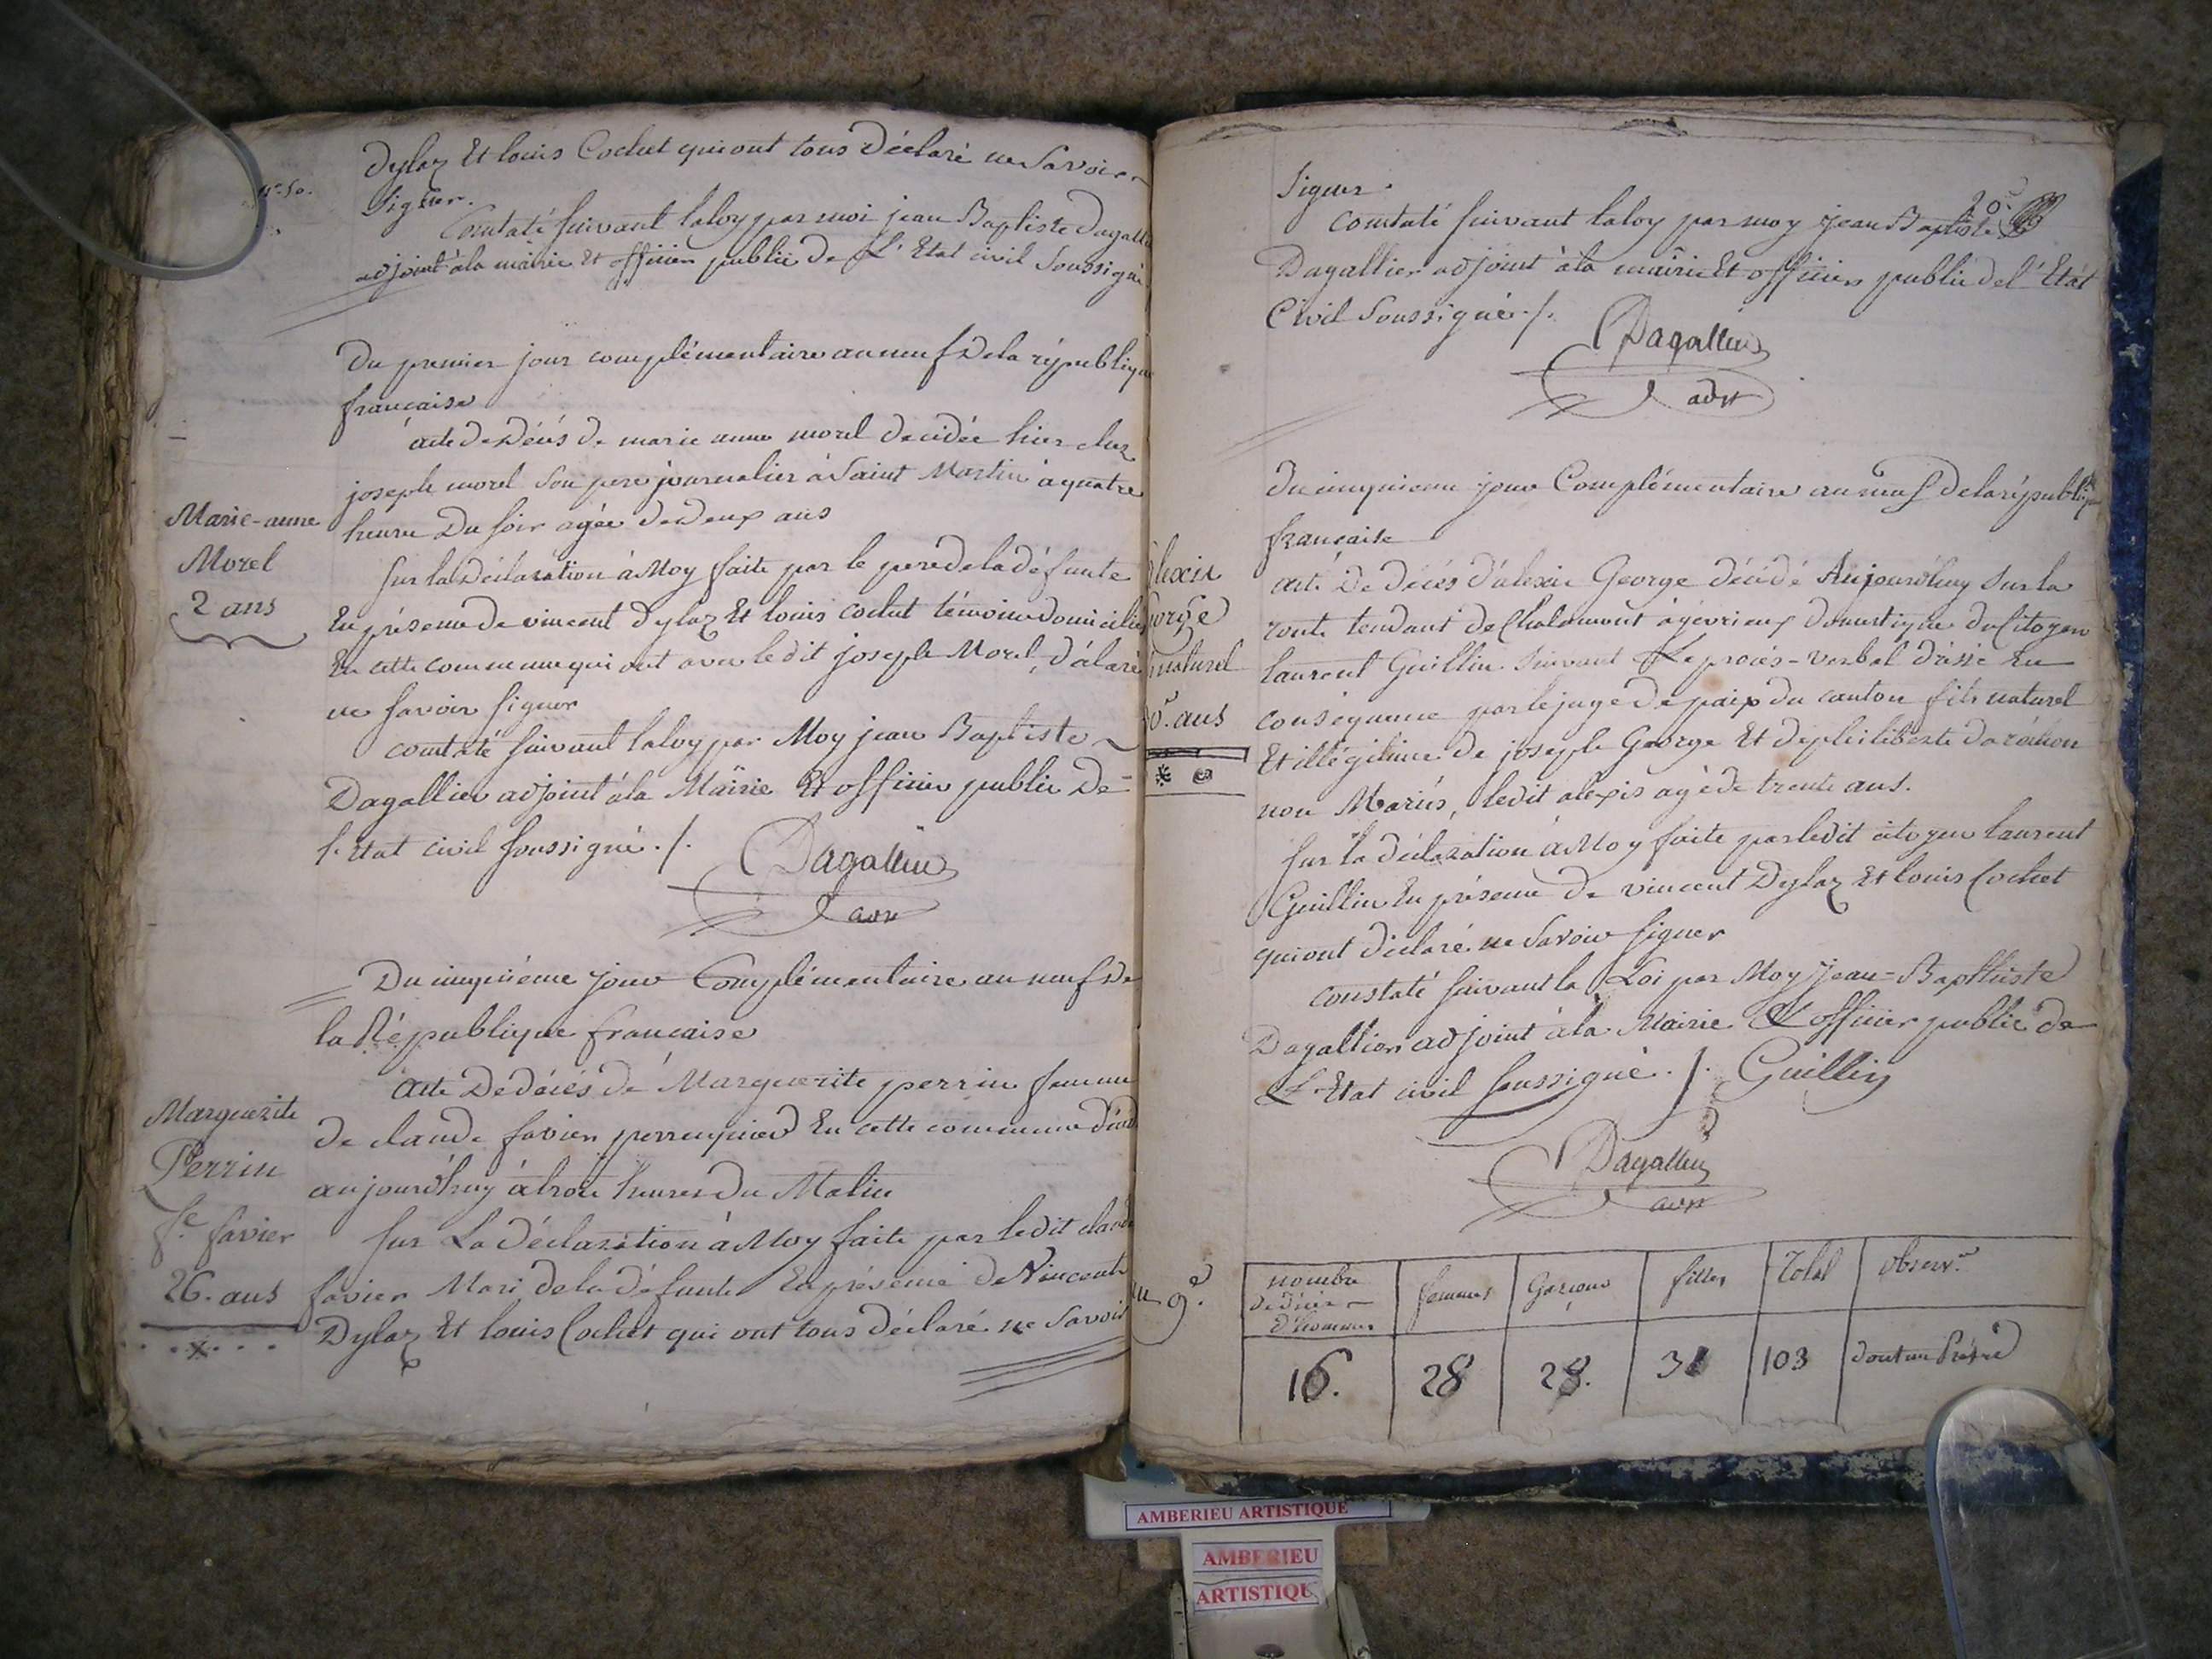 n.° 50.
Dylaz Et louis Cochet qui ont tous Déclaré ne Savoir
Signer.
Constaté suivant la loy par moi jean Baptiste Dagallier
adjoint à la mairie Et officier public de L'Etat civil Soussigné
Du premier jour complémentaire an neuf De la république
française
acte de Décès de marie anne morel decidée hier chez
joseph morel Son pere journalier à Saint Martin à quatre
heure Du soir agée de Deux ans
Marie-anne
Morel
2 ans
Sur la Déclaration à Moy faite par le pere de la défunte
En présence de vincent Dylaz Et louis cochet témoins domiciliés
En cette commune qui ont avec ledit joseph Morel, déclaré
ne savoir signer
constaté suivant la loy par Moy jean Baptiste
Dagallier adjoint à la Mairie Et officier public De
l'Etat civil soussigné ./.
Dagallier
adjt
Du cinquième jour Complémentaire an neuf De
la République française
Acte De décès de Marguerite perrin femme
de claude favier perruquier En cette commune
aujourd'huy à trois heures du Matin
Marguerite
Perrin
fe. favier
26. ans
Sur La Déclaration à Moy faite par ledit claude
favier Mari de la défunte En présence de Vincent
Dylaz Et louis Cochet qui ont tous déclaré ne Savoir
Signer.
Constaté suivant la loy par moy jean Baptiste
Dagallier adjoint à la mairie Et officier public de l'Etat
Civil Soussigné ./.
Dagallier
adjt
Du cinquieme jour Complémentaire an neuf De la république
française
acte De décès d'alexis George décédé Aujourd'huy Sur la
route tendant de Chalamont à gevrieux domestique du Citoyen
laurent Guillin Suivant Le procès-verbal dressé En
conséquence par le juge de paix du canton fils naturel
Et illégitime de joseph George Et de philiberte
non Mariés, ledit alexis agé de trente ans.
alexis
George
naturel
30. ans
Sur la déclaration à Moy faite par ledit citoyen laurent
Guillin En présence de vincent Dylaz Et louis Cochet
qui ont déclaré ne Savoir signer
constaté suivant la Loi par Moy Jean-Baptiste
Dagallier adjoint à la Mairie & officier public de
L'Etat civil soussigné ./. Guillin
Dagallier
adjt
an 9.e
nombre de décès d'hommes | femmes | Garçons | filles | Total | observ.on
16. | 28 | 28. | 31 | 103 | dont un Prêtre
AMBERIEU ARTISTIQUE
AMBERIEU
ARTISTIQUE